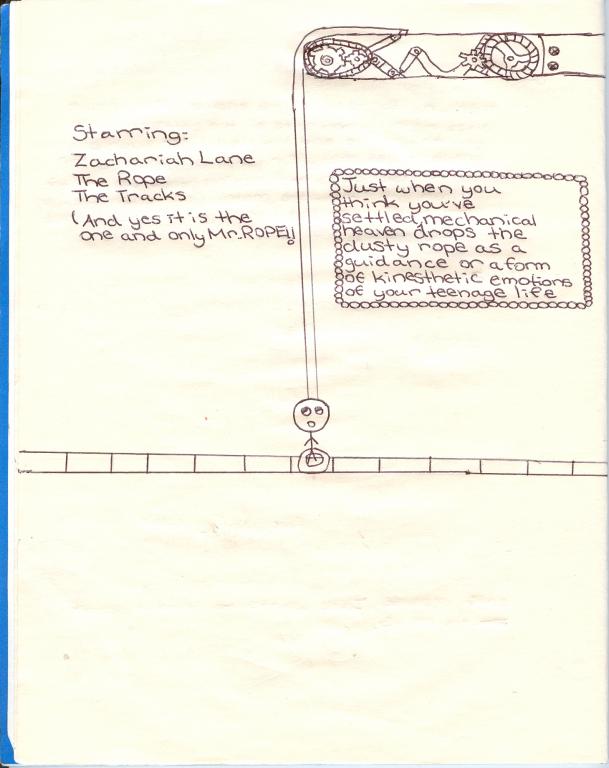 Starring:
Zachariah Lane
The Rope
The Tracks
(And yes it is the
one and only Mr.ROPE!!
Just when you
think you've
settled, mechanical
heaven drops the
dusty rope as a
guidance or a form
of kinesthetic emotions
of your teenage life